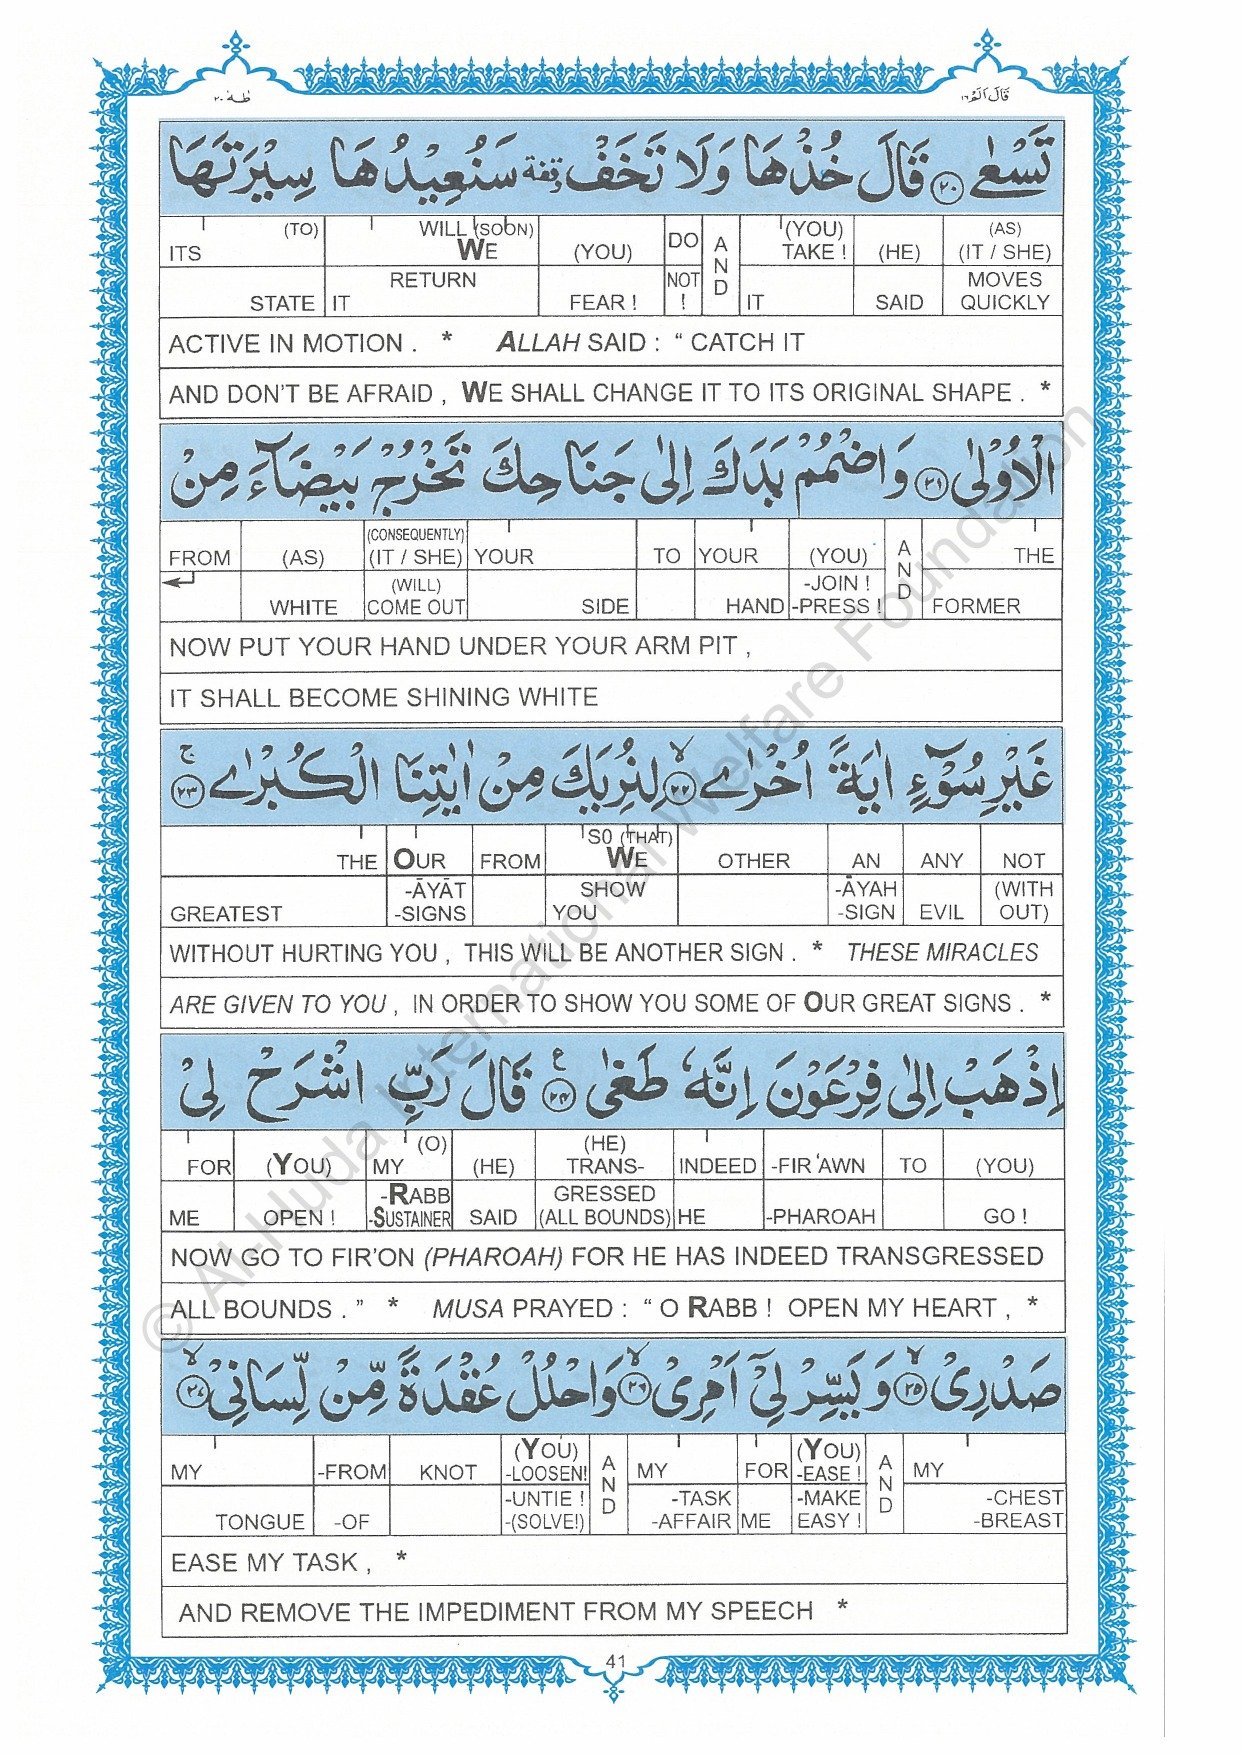 طٰهٰ ٢٠
قَالَ اَلَمْ ١٦
تَسْعٰى ﴿٢٠﴾ قَالَ خُذْهَا وَلَا تَخَفْ وقفة سَنُعِيْدُهَا سِيْرَتَهَا
ITS (TO) WILL (SOON) WE (YOU) DO AND (YOU) TAKE ! (HE) (AS) (IT / SHE)
STATE IT RETURN FEAR ! NOT ! IT SAID MOVES QUICKLY
ACTIVE IN MOTION . * ALLAH SAID : “ CATCH IT
AND DON’T BE AFRAID , WE SHALL CHANGE IT TO ITS ORIGINAL SHAPE . *
الْاُوْلٰى ﴿٢١﴾ وَاضْمُمْ يَدَكَ اِلٰى جَنَاحِكَ تَخْرُجْ بَيْضَآءَ مِنْ
FROM (AS) (CONSEQUENTLY) (IT / SHE) YOUR TO YOUR (YOU) AND THE
WHITE (WILL) COME OUT SIDE HAND -JOIN ! -PRESS ! FORMER
NOW PUT YOUR HAND UNDER YOUR ARM PIT ,
IT SHALL BECOME SHINING WHITE
غَيْرِ سُوْٓءٍ اٰيَةً اُخْرٰى ﴿٢٢﴾ۙ لِنُرِيَكَ مِنْ اٰيٰتِنَا الْكُبْرٰى ﴿٢٣﴾ۚ
THE OUR FROM SO (THAT) WE OTHER AN ANY NOT
GREATEST -ĀYĀT -SIGNS SHOW YOU -ĀYAH -SIGN EVIL (WITH OUT)
WITHOUT HURTING YOU , THIS WILL BE ANOTHER SIGN . * THESE MIRACLES
ARE GIVEN TO YOU , IN ORDER TO SHOW YOU SOME OF OUR GREAT SIGNS . *
اِذْهَبْ اِلٰى فِرْعَوْنَ اِنَّهٗ طَغٰى ﴿٢٤﴾ ع قَالَ رَبِّ اشْرَحْ لِيْ
FOR (YOU) MY (O) (HE) (HE) TRANS- INDEED -FIR‘AWN TO (YOU)
ME OPEN ! -RABB -SUSTAINER SAID GRESSED (ALL BOUNDS) HE -PHAROAH GO !
NOW GO TO FIR’ON (PHAROAH) FOR HE HAS INDEED TRANSGRESSED
ALL BOUNDS . ” * MUSA PRAYED : “ O RABB ! OPEN MY HEART , *
صَدْرِيْ ﴿٢٥﴾ۙ وَيَسِّرْ لِيْٓ اَمْرِيْ ﴿٢٦﴾ۙ وَاحْلُلْ عُقْدَةً مِّنْ لِّسَانِيْ ﴿٢٧﴾ۙ
MY -FROM KNOT (YOU) -LOOSEN! AND MY FOR (YOU) -EASE ! AND MY
TONGUE -OF -UNTIE ! -(SOLVE!) -TASK -AFFAIR ME -MAKE EASY ! -CHEST -BREAST
EASE MY TASK , *
AND REMOVE THE IMPEDIMENT FROM MY SPEECH *
41
© Al-Huda International Welfare Foundation